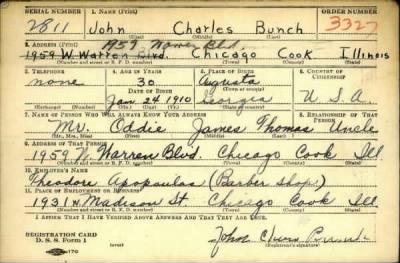 SERIAL NUMBER 1. NAME (Print) ORDER NUMBER
2811 John Charles Bunch 3327
(First) (Middle) (Last)
2. ADDRESS (Print) 1959 Warren Blvd.
1959 W. Warren Blvd. Chicago Cook Illinois
(Number and street or R. F. D. number) (Town) (County) (State)
3. TELEPHONE 4. AGE IN YEARS 5. PLACE OF BIRTH 6. COUNTRY OF CITIZENSHIP
none 30 Augusta
DATE OF BIRTH
Jan 24 1910 Georgia U.S.A.
7. NAME OF PERSON WHO WILL ALWAYS KNOW YOUR ADDRESS 8. RELATIONSHIP OF THAT PERSON
Mr. Oddie James Thomas Uncle
(Mr., Mrs., Miss) (First) (Middle) (Last)
9. ADDRESS OF THAT PERSON
1959 W. Warren Blvd. Chicago Cook Ill
(Number and street or R. F. D. number) (Town) (County) (State)
10. EMPLOYER'S NAME
Theodore Apopoulas (Barber shop)
11. PLACE OF EMPLOYMENT OR BUSINESS
1931 W Madison St. Chicago Cook Ill
(Number and street or R. F. D. number) (Town) (County) (State)
I AFFIRM THAT I HAVE VERIFIED ABOVE ANSWERS AND THAT THEY ARE TRUE.
REGISTRATION CARD
D. S. S. Form 1
John
(Registrant's signature)